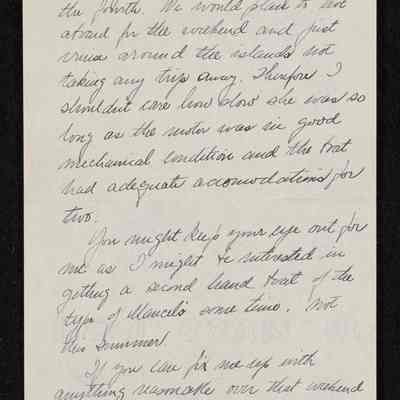 the fourth. We would plan to live
aboard for the weekend and just
cruise around the islands not
taking any trip away. Therefore I
shouldnt care how slow she was so
long as the motor was in good
mechanical condition and the boat
had adequate acomodations for
two.
You might keep your eye out for
me as I might be interested in
getting a second hand boat of the
type of Mancel's some time. Not
this summer.
If you can fix me up with
anything reasonable over that weekend